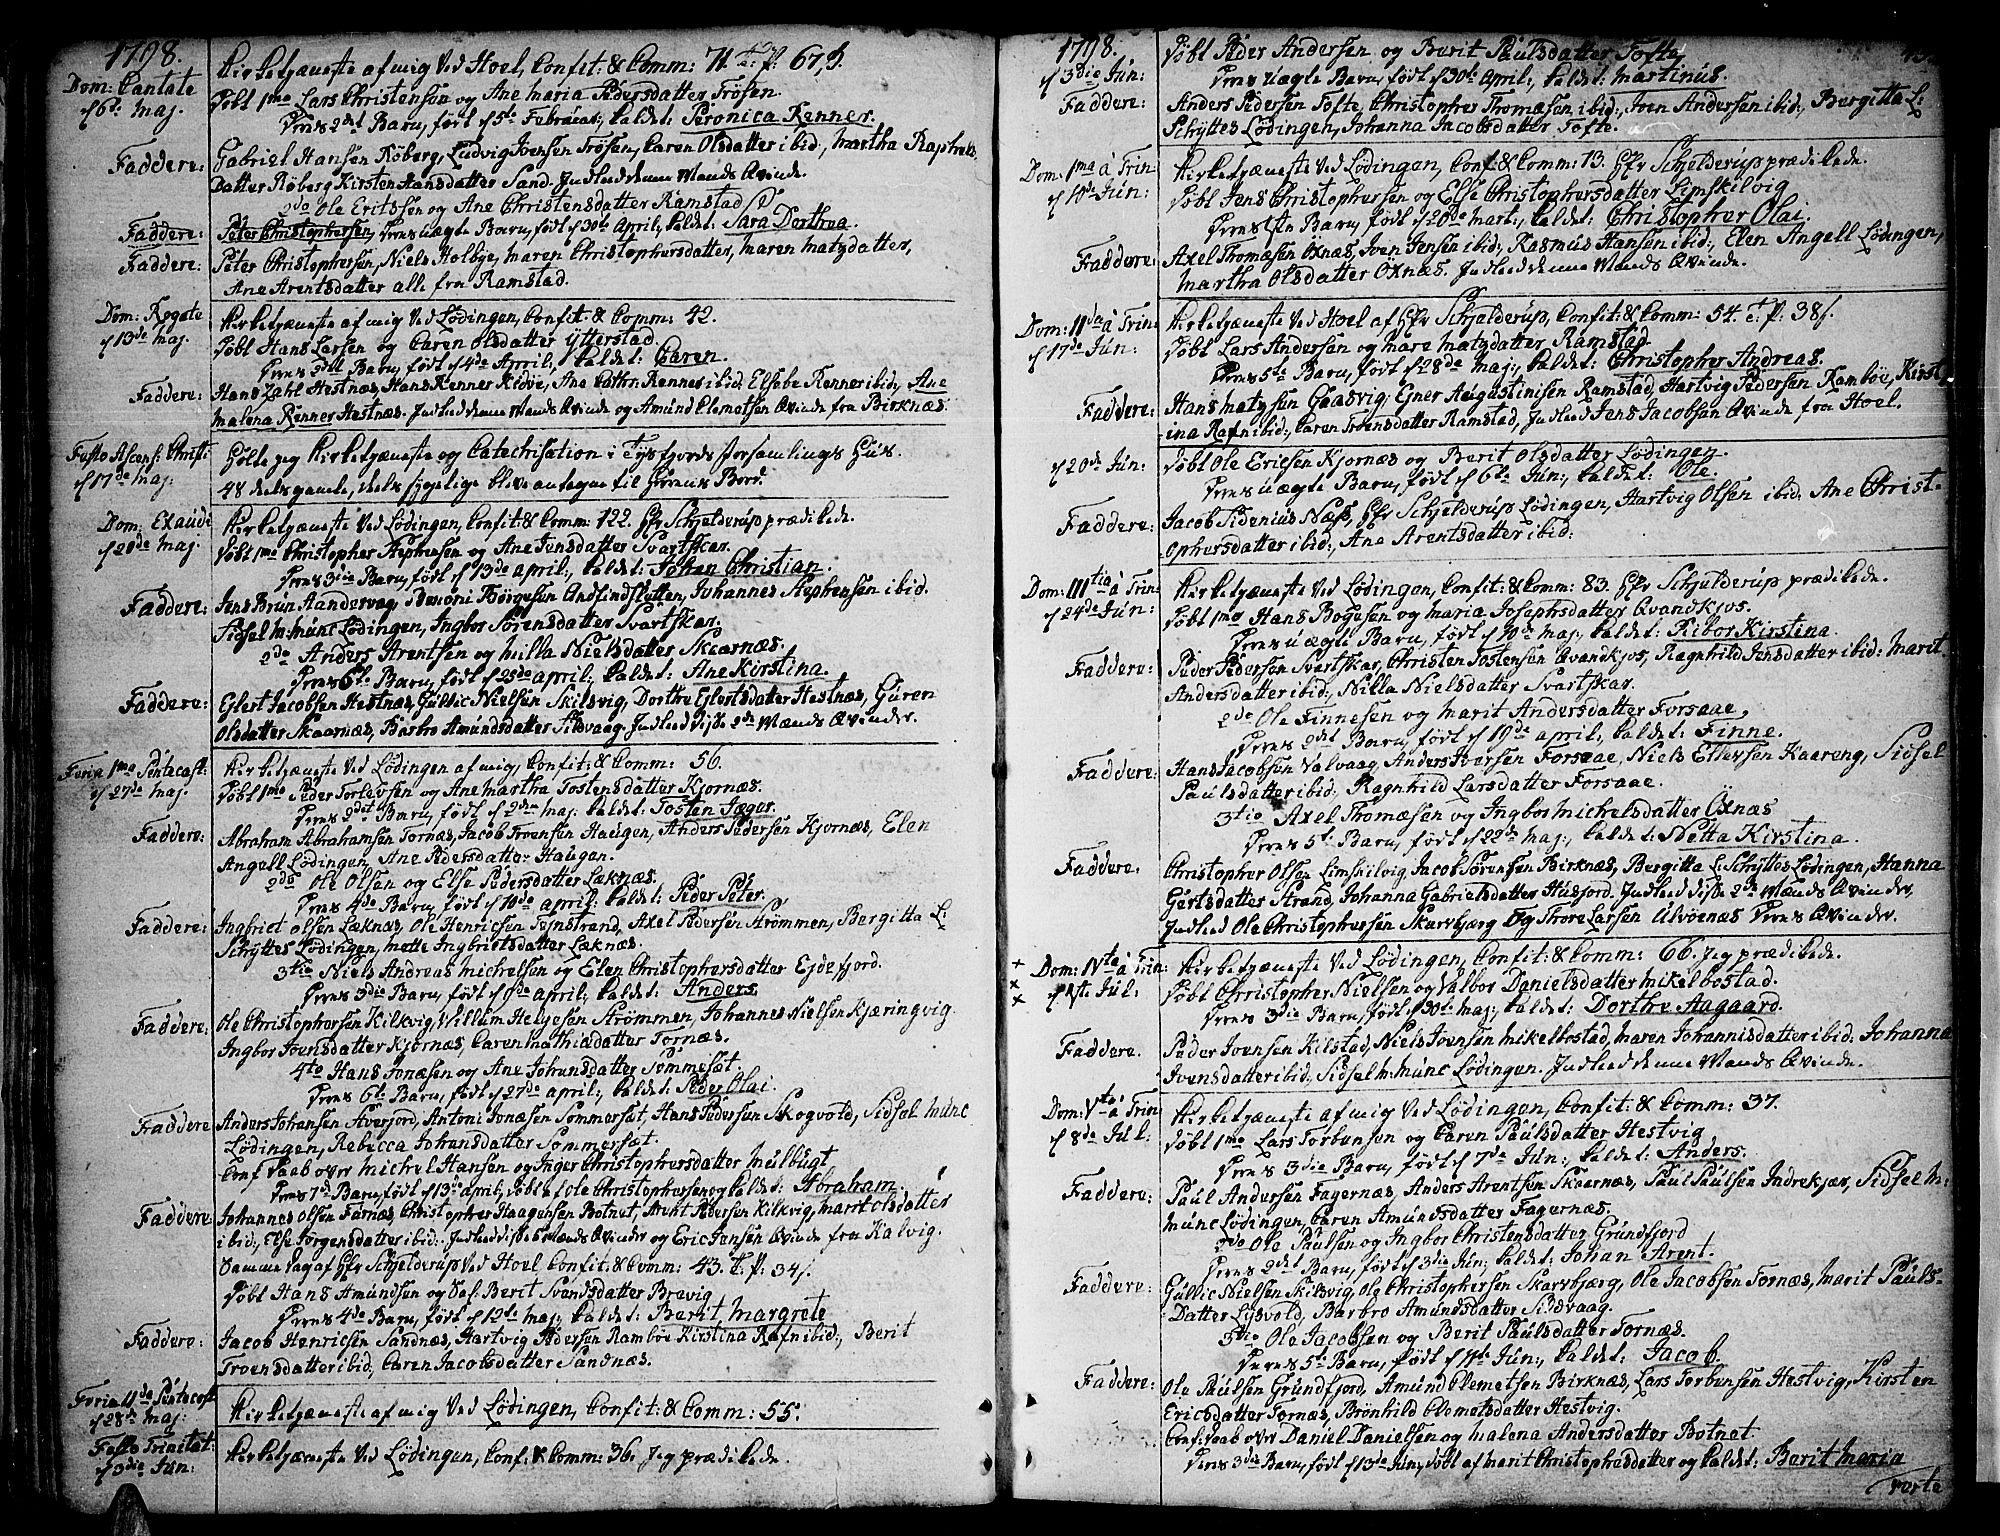 1798.
Dom: Cantate
d 6te Maj.
Kirketjæneste af mig ved Hoel, Confit: & Comm: 71 T. P. 67 s.
Døbt 1mo Lars Christensøn og Ane Maria Pedersdatter Trøsen.
Deres 2det Barn, født d 5te Februar; kaldet: Peronica Renner.
Faddere: Gabriel Hansen Røberg, Ludvig Ivensen Trøsen, Caren Olsdatter ibid:, Martha Raphels
Datter Røberg Kirsten Hansdatter Sand. Indleed denne Mands Qvinde.
2do Ole Eritssen og Ane Christensdatter Ramstad
Faddere: Peter Christophersen, Deres uægte Barn, født d 30te April; kaldet: Sara Dorthea
Faddere: Peter Christophersen, Niels Holbye, Maren Christophersdatter, Maren Matzdatter,
Ane Arentsdatter alle fra Ramstad.
Dom: Rogate
d 13de Maj.
Kirketjæneste af mig ved Lødingen, Confit: & Comm: 42.
Døbt Hans Larsen og Caren Olsdatter Ytterstad.
Deres 2det Barn, født d 4de April; kaldet: Caren.
Faddere: Hans Zahl Hestnæs, Hans Renner Ridøe, Ane Cathr: Renner ibid: Elsebe Renner ibid:, Ane
Malena Renner Hestnæs. Indleed denne Mands Qvinde og Amund Clemetsen Qvinde fra Birknæs.
Festo Ascens: Christi
d 17de Maj.
Holte jeg Kirketjæneste og Catechisation i Tysfjords Forsamlings Huus.
48 deels gamle, deels sygelige bleve antagen til Herrens Bord.
Dom: Exaudi
d 20de Maj.
Kirketjæneste ved Lødingen, Confit: & Comm: 122. Hr Schjelderup prædikede.
Døbt 1mo Christopher Stephensen og Ane Jensdatter Svartskar.
Deres 3die Barn, født d 13de April; kaldet: Johan Christian.
Faddere: Jens Brun Aandervag, Simoni Børgesen Andfindsletten, Johannes Stephensen ibid.
Sidsel M: Munc Lødingen, Ingbor Sørensdatter Svartskar.
2do Anders Arentsen og Milla Nielsdatter Skaarnæs.
Deres 6te Barn, født d 25de April; kaldet: Ane Kirstina.
Faddere: Eglert Jacobsen Hestnæs, Gullic Nielsen Skilsvig, Dorthe Eglertsdatter Hestnæs, Guren
Olsdatter Skaarnæs, Barbro Amundsdatter Sildvaag. Indleed disse 2de Mænds Qvinder.
Feria 1ma Pentecost:
d 27de Maj.
Kirketjæneste ved Lødingen af mig, Confit: & Comm: 56.
Døbt 1mo Peder Torlavsen og Ane Martha Tostensdatter Kjornæs.
Deres 2det Barn, født d 2den Maj; kaldet: Tosten Jæger.
Faddere: Abraham Abrahamsen Tornæs, Jacob Troensen Haugen, Anders Pedersen Kjornæs, Elen
Angell Lødingen, Ane Pedersdatter Haugen.
2do Ole Olsen og Else Pedersdatter Læknæs.
Deres 4de Barn, født d 10de April; kaldet: Peder Peter.
Faddere: Ingbriet Olsen Læknæs, Ole Henricsen Tejnstrand, Axel Pedersen Strømmen, Bergitta L:
Schyttes Lødingen, Mette Ingbrietsdatter Læknæs.
3tio Niels Andreas Michelsen og Elen Christophersdatter Ejdefjord.
Deres 3die Barn, født d April; kaldet: Anders
Faddere: Ole Christophersen Kilkvig, Willum Helgesen Strømmen, Johannes Nielsen Kjæringvig.
Ingbor Ivensdatter Kjornæs, Caren Mathiadatter Tornæs.
4to Hans Jonæsen og Ane Johansdatter Sommesæt.
Deres 6te Barn, født d 27de April; kaldet: Peder Olai.
Faddere Anders Johansen Aversord, Antoni Jonæsen Sommerset, Hans Pedersen Skogvold, Sidsel Munc
Lødingen, Rebecca Johansdatter Sommersæt.
Conf Daab over Michel Hansen og Inger Christophersdatter Meulbugt
Deres 1ste Barn, født d 13de April, døbt af Ole Christophersen og kaldet: Abraham.
Faddere Johannes Olsen Tornæs, Christopher Haagensen Botnet, Arent Pedersen Kilkvig, Marit Olsdatter
ibid:, Else Jørgensdatter ibid: Indleed disse Mands Qvinder og Eric Jensen Qvinde fra Kalvig.
Samme Dag af Hr Schjelderup ved Hoel Confit: & Comm: 43. T. P: 34 s.
Døbt Hans Amundsen og Sal. Berit Svendsdatter Brevig
Deres 4de Barn, født d 12te Maj; kaldet: Berit Margrete
Faddere: Jacob Henricsen Sandnæs, Hartvig Pedersen Rambøe Kirstina Rafn ibid:, Berit
Troensdatter ibid:, Caren Jacobsdatter Sandnæs.
Feria 11da Pentecost
d 28de Maj:
Kirketjæneste af mig ved Lødingen, Confit: & Comm: 55.
Festo Trinitat:
d 3die Jun:
Kirketjæneste ved Lødingen, Conf: & Comm: 36. Jeg prædikede.
1798.
d 3die Jun:
Døbt Peder Andersen og Berit Paulsdatter Tofte,
Deres uægte Barn, født d 30te April; kaldet: Martinus.
Faddere: Anders Pedersen Tofte, Christopher Thomæsen ibid:, Iven Andersen ibid:, Bergitta L:
Schyttes Lødingen, Johanna Jacobsdatter Tofte.
Dom: 1ma à Trin:
d 10de Jun:
Kirketjæneste ved Lødingen, Conf: & Comm: 13. Hr Schjelderup prædikede.
Døbt Jens Christophersen og Else Christophersdatter Limskilvig
Deres 1ste Barn, født d 20de Mart:, kaldet: Christopher Olai.
Faddere: Axel Thomæsen Oxnæs, Iven Jensen ibid:, Rasmus Hansen ibid:, Elen Angell Lødingen,
Martha Olsdatter Oxnæs. Indleed denne Mands Qvinde.
Dom: 11da à Trin:
d 17de Jun:
Kirketjæneste ved Hoel af Hr Schjelderup, Confit: & Comm: 54. T. P: 38 s.
Døbt Lars Andersen og Mare Matzdatter Ramstad.
Deres 5te Barn, født d 28de Maj; kaldet: Christopher Andreas.
Faddere: Hans Matzsen Gaasvig, Ejner Augustinisen Ramstad, Hartvig Pedersen Rambøe, Kirst-
ina Rafn ibid:, Caren Troensdatter Ramstad, Indleed Jens Jacobsen Qvinde fra Hoel.
d 20de Jun:
Døbt Ole Ericsen Kjornæs og Berit Olsdatter Lødingen.
Deres uægte Barn, født d 6te Jun:, kaldet: Ole.
Faddere: Jacob Sidenius Næss, Hr Schjelderup Lødingen, Hartvig Olsen ibid: Ane Christ-
ophersdatter ibid:, Ane Arentsdatter ibid:
Dom: 111tia à Trin:
d 24de Jun:
Kirketjæneste ved Lødingen, Confit: & Comm: 83. Hr Schjelderup prædikede.
Døbt 1mo Hans Bogesen og Maria Josephsdatter Qvandkjos.
Deres uægte Barn, født d 10de Maj; kaldet: Ribor Kirstina.
Faddere: Peder Pedersen Svartskar, Christen Tostensen Qvandkjos, Ragnhild Jensdatter ibid: Marit
Andersdatter ibid:, Nilla Nielsdatter Svartskar.
2do Ole Finnesen og Marit Andersdatter Forsaae,
Deres 2det Barn, født d 19de April; kaldet: Finne.
Faddere: Hans Jacobsen Valvaag, Anders Iversen Forsaae, Niels Ellevsen Kaareng, Sidsel
Paulsdatter ibid:, Ragnhild Larsdatter Forsaae.
3tio Axel Thomæsen og Ingbor Michelsdatter Oxnæs
Deres 5te Barn, født d 22de Maj; kaldet: Netta Kirstina.
Faddere: Christopher Olsen Limskilvig Jacob Sørensen Birknæs, Bergitta L: Schyttes Lødingen, Hanna
Gertsdatter Strand, Johanna Gabrielsdatter Husjord. Indleed disse 2de Mænds Qvinder,
Indleed Ole Christophersen Skarvbjærg og Thore Larsen Ulvøenæs Deres Qvinder.
+
×
×
Dom: IVta à Trin:
d 1ste Jul:
Kirketjæneste ved Lødingen, Confit: & Comm: 66. Jeg prædikede.
Døbt Christopher Nielsen og Valbor Danielsdatter Mikelbostad.
Deres 3die Barn, født d 30te Maj; kaldet: Dorthe Aagaard.
Faddere. Peder Ivensen Kilstad, Niels Ivensen Mikelbostad, Maren Johannisdatter ibid: Johanna
Ivensdatter ibid:, Sidsel M: Munc Lødingen. Indleed denne Mands Qvinde.
Dom: Vta à Trin:
d 8de Jul:
Kirketjæneste af mig ved Lødingen, Confit: & Comm: 37.
Døbt 1mo Lars Torbensen og Caren Paulsdatter Hestvig
Deres 3die Barn, født d 7de Jun:, kaldet: Anders.
Faddere: Paul Andersen Fagernæs, Anders Arentsen Skaarnæs, Paul Paulsen Indrekjær, Sidsel M:
Munc Lødingen, Caren Amundsdatter Fagernæs.
2do Ole Paulsen og Ingbor Christensdatter Grundfjord
Deres 2det Barn, født d 3die Jun; kaldet: Johan Arent.
Faddere: Gullic Nielsen Skilsvig, Ole Christophersen Skarvbjærg, Ole Jacobsen Tornæs, Marit Pauls-
Datter Lysvold, Barbro Amundsdatter Sildvaag.
3tio Ole Jacobsen og Berit Paulsdatter Tornæs.
Deres 5te Barn, født d 11te Jun:, kaldet: Jacob.
Faddere: Ole Paulsen Grundfjord, Amund Clemetsen Birknæs, Lars Torbensen Hestvig, Kirsten
Ericsdatter Tornæs, Brønhild Clemetsdatter Hestvig.
Conf: Daab over Daniel Danielsen og Malena Andersdatter Botnet.
Deres 3die Barn, født d 13de Jun:, døbt af Marit Christophersdatter og kaldet: Berit Maria
Verte